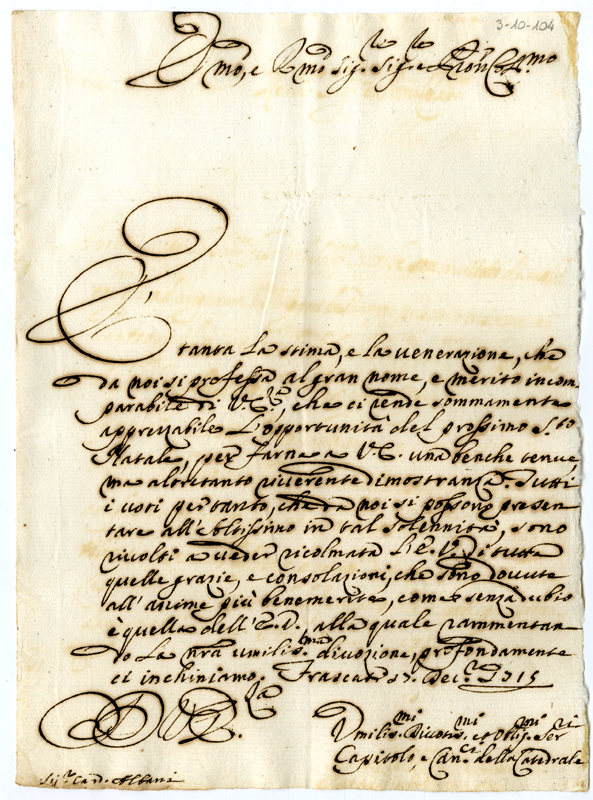 3-10-104
Emo, e Rmo Sig.re Sig.re e Pron Colmo
È
tanta la stima, e la uenerazione, che
da noi si professa al gran nome, e merito incom
parabile di V. Eza, che ci rende sommamente
apprezzabile l'opportunità del prossimo S.to
Natale, per farne a V. E. una benche tenue,
ma altretanto riuerente dimostranza. Tutti
i uoti per tanto, che da noi si possono presen
tare all'Altissimo in tal solennità, sono
riuolti a ueder ricolmata l'E. V. di tutte
quelle grazie, e consolazioni, che sono douute
all'anime più benemerite, come senza dubio
è quella dell'E. V., alla quale rammentan
do la nra umiliss.ma diuozione, profondamente
ci inchiniamo. Frascati Dec. 1715
D V. E.za
Umilis.mi Diuotis.mi et Oblig.mi Ser.ri
Capitolo, e Can.ci della Catedrale
Sig.r Card. Albani